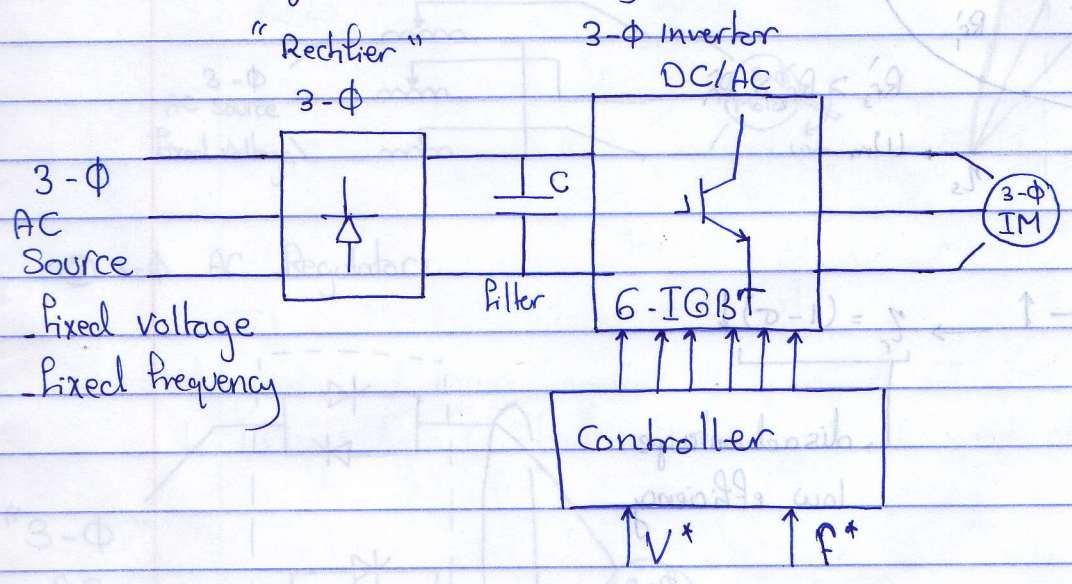 " Rectifier "
3-Φ
3-Φ Invertor
DC/AC
3-Φ
AC
Source
- fixed voltage
- fixed frequency
C
filter
6-IGBT
3-Φ
IM
Controller
V*
f*